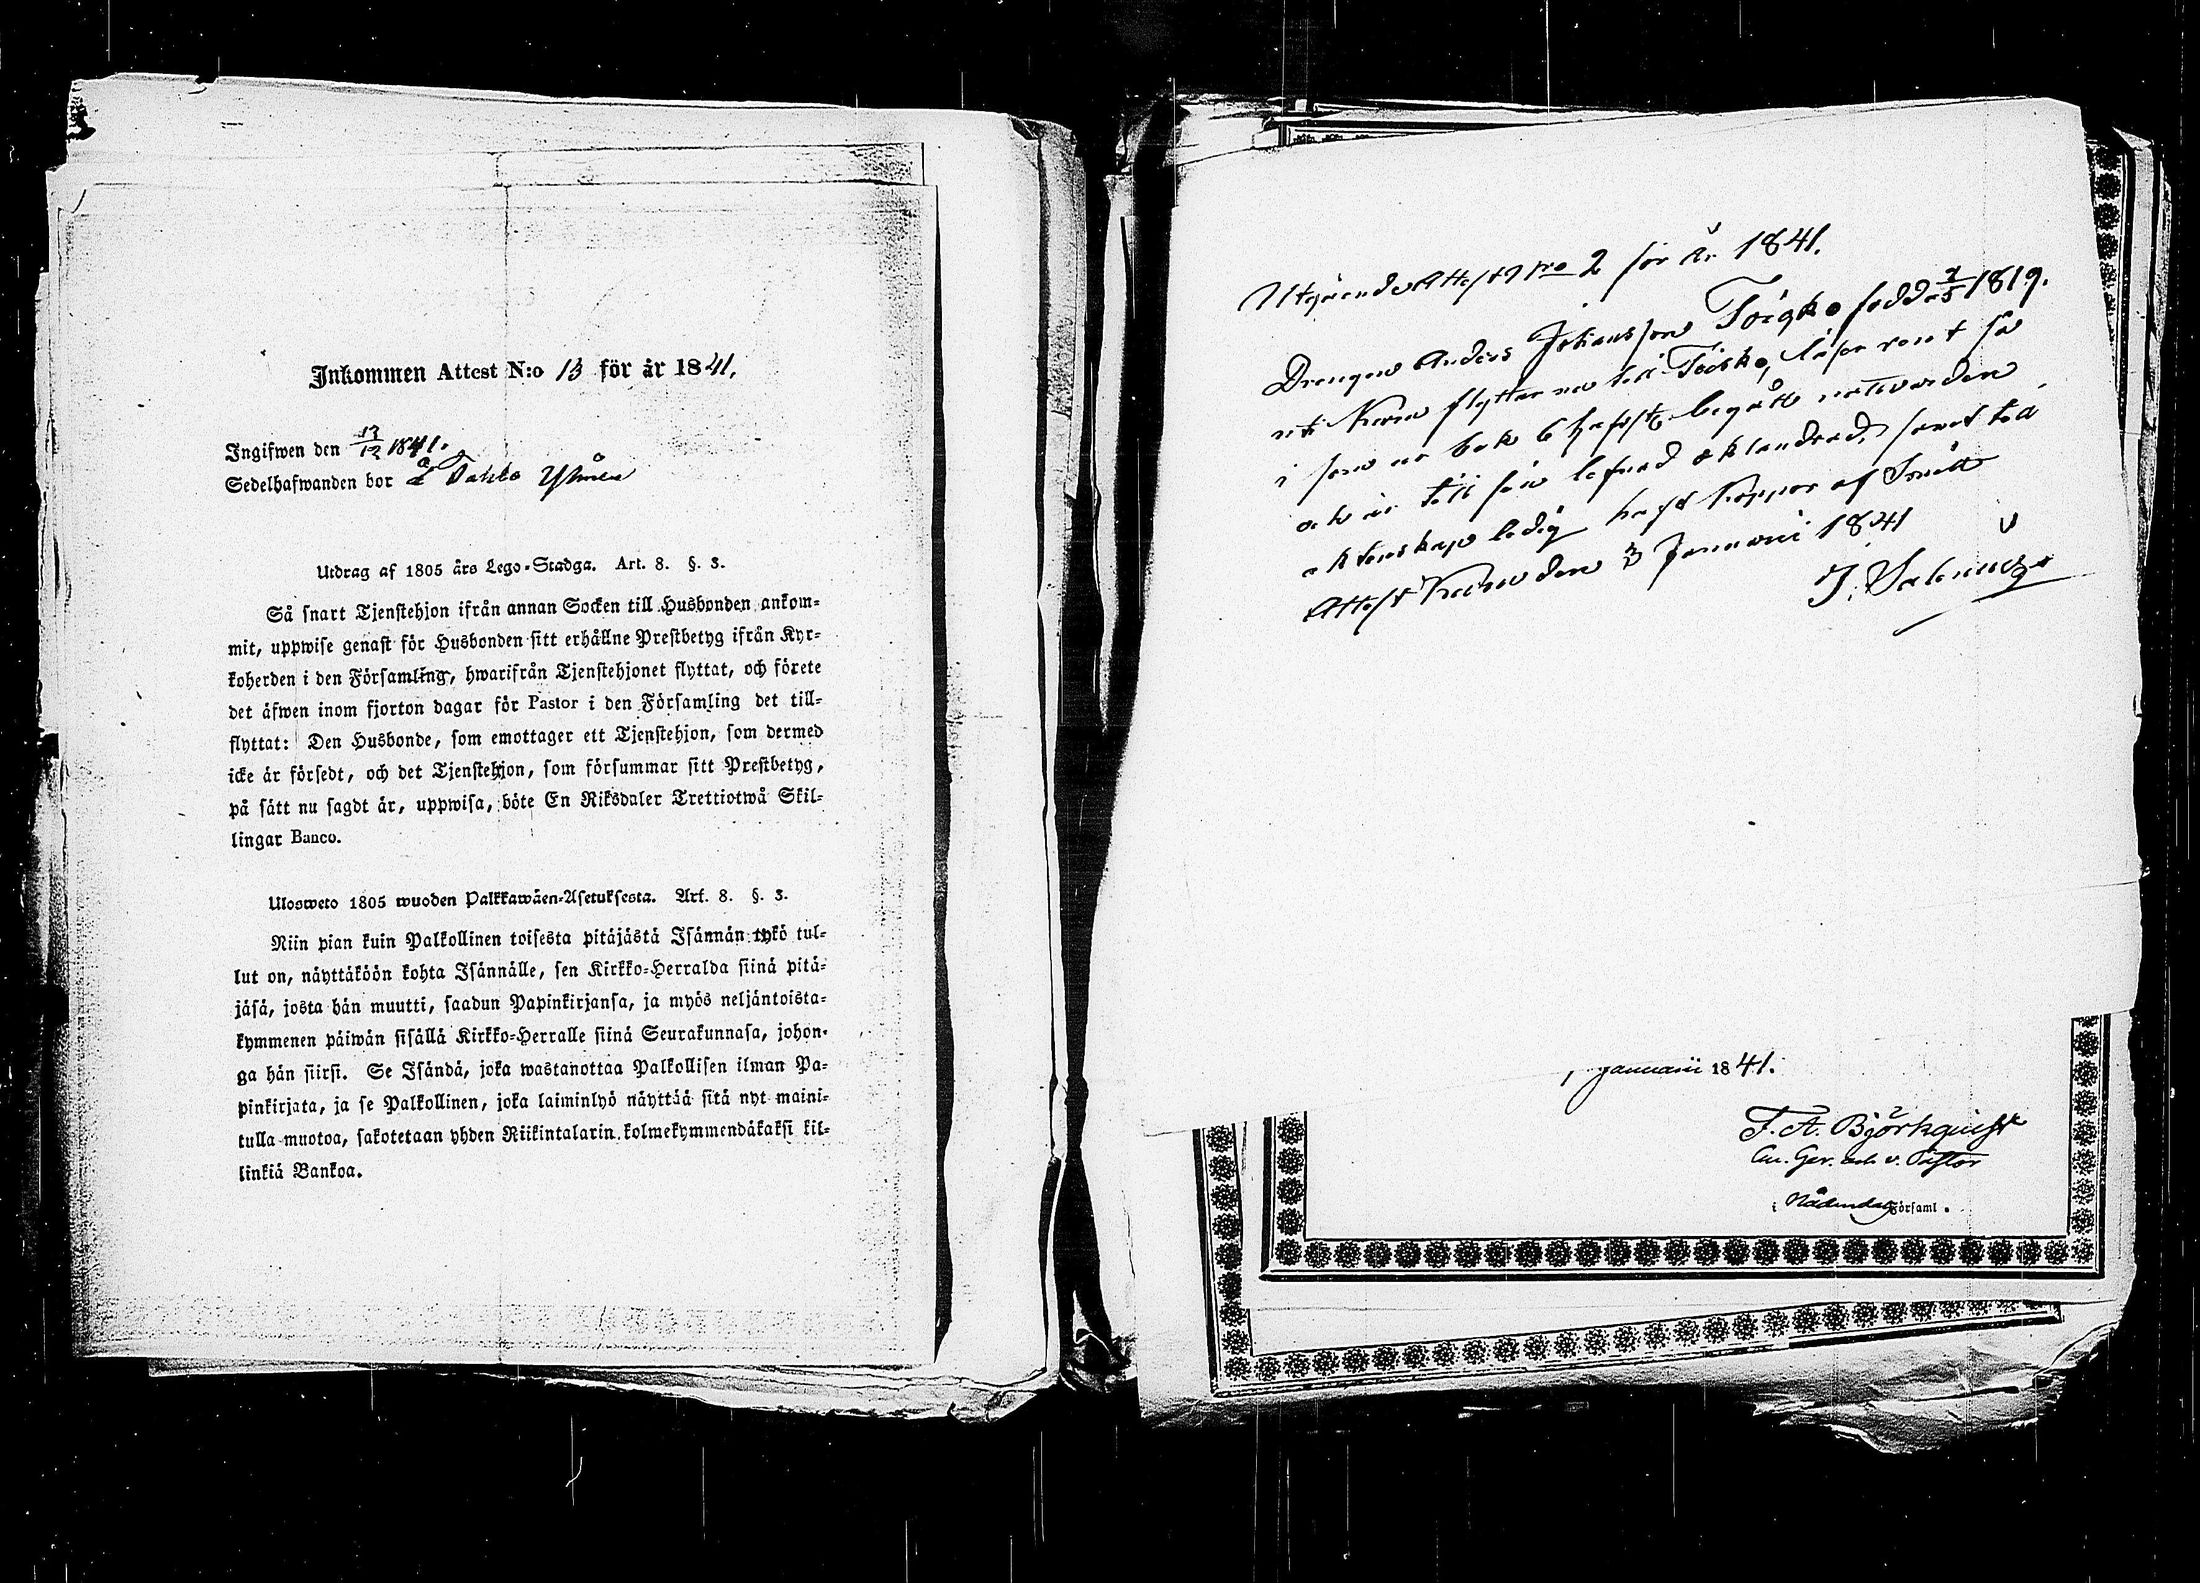 Inkommen Attest N:o 13 för år 1841.
Ingifwen den 13/12 1841.
Sedelhafwanden bor å
Utdrag af 1805 års Lego-Stadga. Art. 8. §. 3.
Så snart Tjenstehjon ifrån annan Socken till Husbonden ankom-
mit, uppwise genast för Husbonden sitt erhållne Prestbetyg ifrån Kyr-
koherden i den Församling, hwarifrån Tjenstehjonet flyttat, och förete
det äfwen inom fjorton dagar för Pastor i den Församling det till-
flyttat: Den Husbonde, som emottager ett Tjenstehjon, som dermed
icke är försedt, och det Tjenstehjon, som försummar sitt Prestbetyg,
på sätt nu sagdt är, uppwisa, böte En Riksdaler Trettiotwå Skil-
lingar Banco.
Ulosweto 1805 wuoden Palkkawäen-Asetuksesta. Art. 8. §. 3.
Niin pian kuin Palkollinen toisesta pitäjästä Isännän tykö tul-
lut on, näyttäköön kohta Isännälle, sen Kirkko-Herralda siinä pitä-
jäsä, josta hän muutti, saadun Papinkirjansa, ja myös neljäntoista-
kymmenen päiwän sisällä Kirkko-Herralle siinä Seurakunnasa, johon-
ga hän siirsi. Se Isändä, joka wastanottaa Palkollisen ilman Pa-
pinkirjata, ja se Palkollinen, joka laiminlyö näyttää sitä nyt maini-
tulla muotoa, sakotetaan yhden Riikintalarin kolmekymmendäkaksi kil-
linkiä Bankoa.
Utgåendes Attest Nro 2 för År 1841.
Drengen Anders Johansson födde 1819.
flyttar nu till läser rent så
i som ur bok begått nattvarden
och är till sin lefnad oklandrad, samt till
ektenskap ledig haft Koppor af
Attest den 3 Januarii 1841
J.
januarii 1841.
F. A. Björkquist
v. Pastor
i Nådendal Församl.